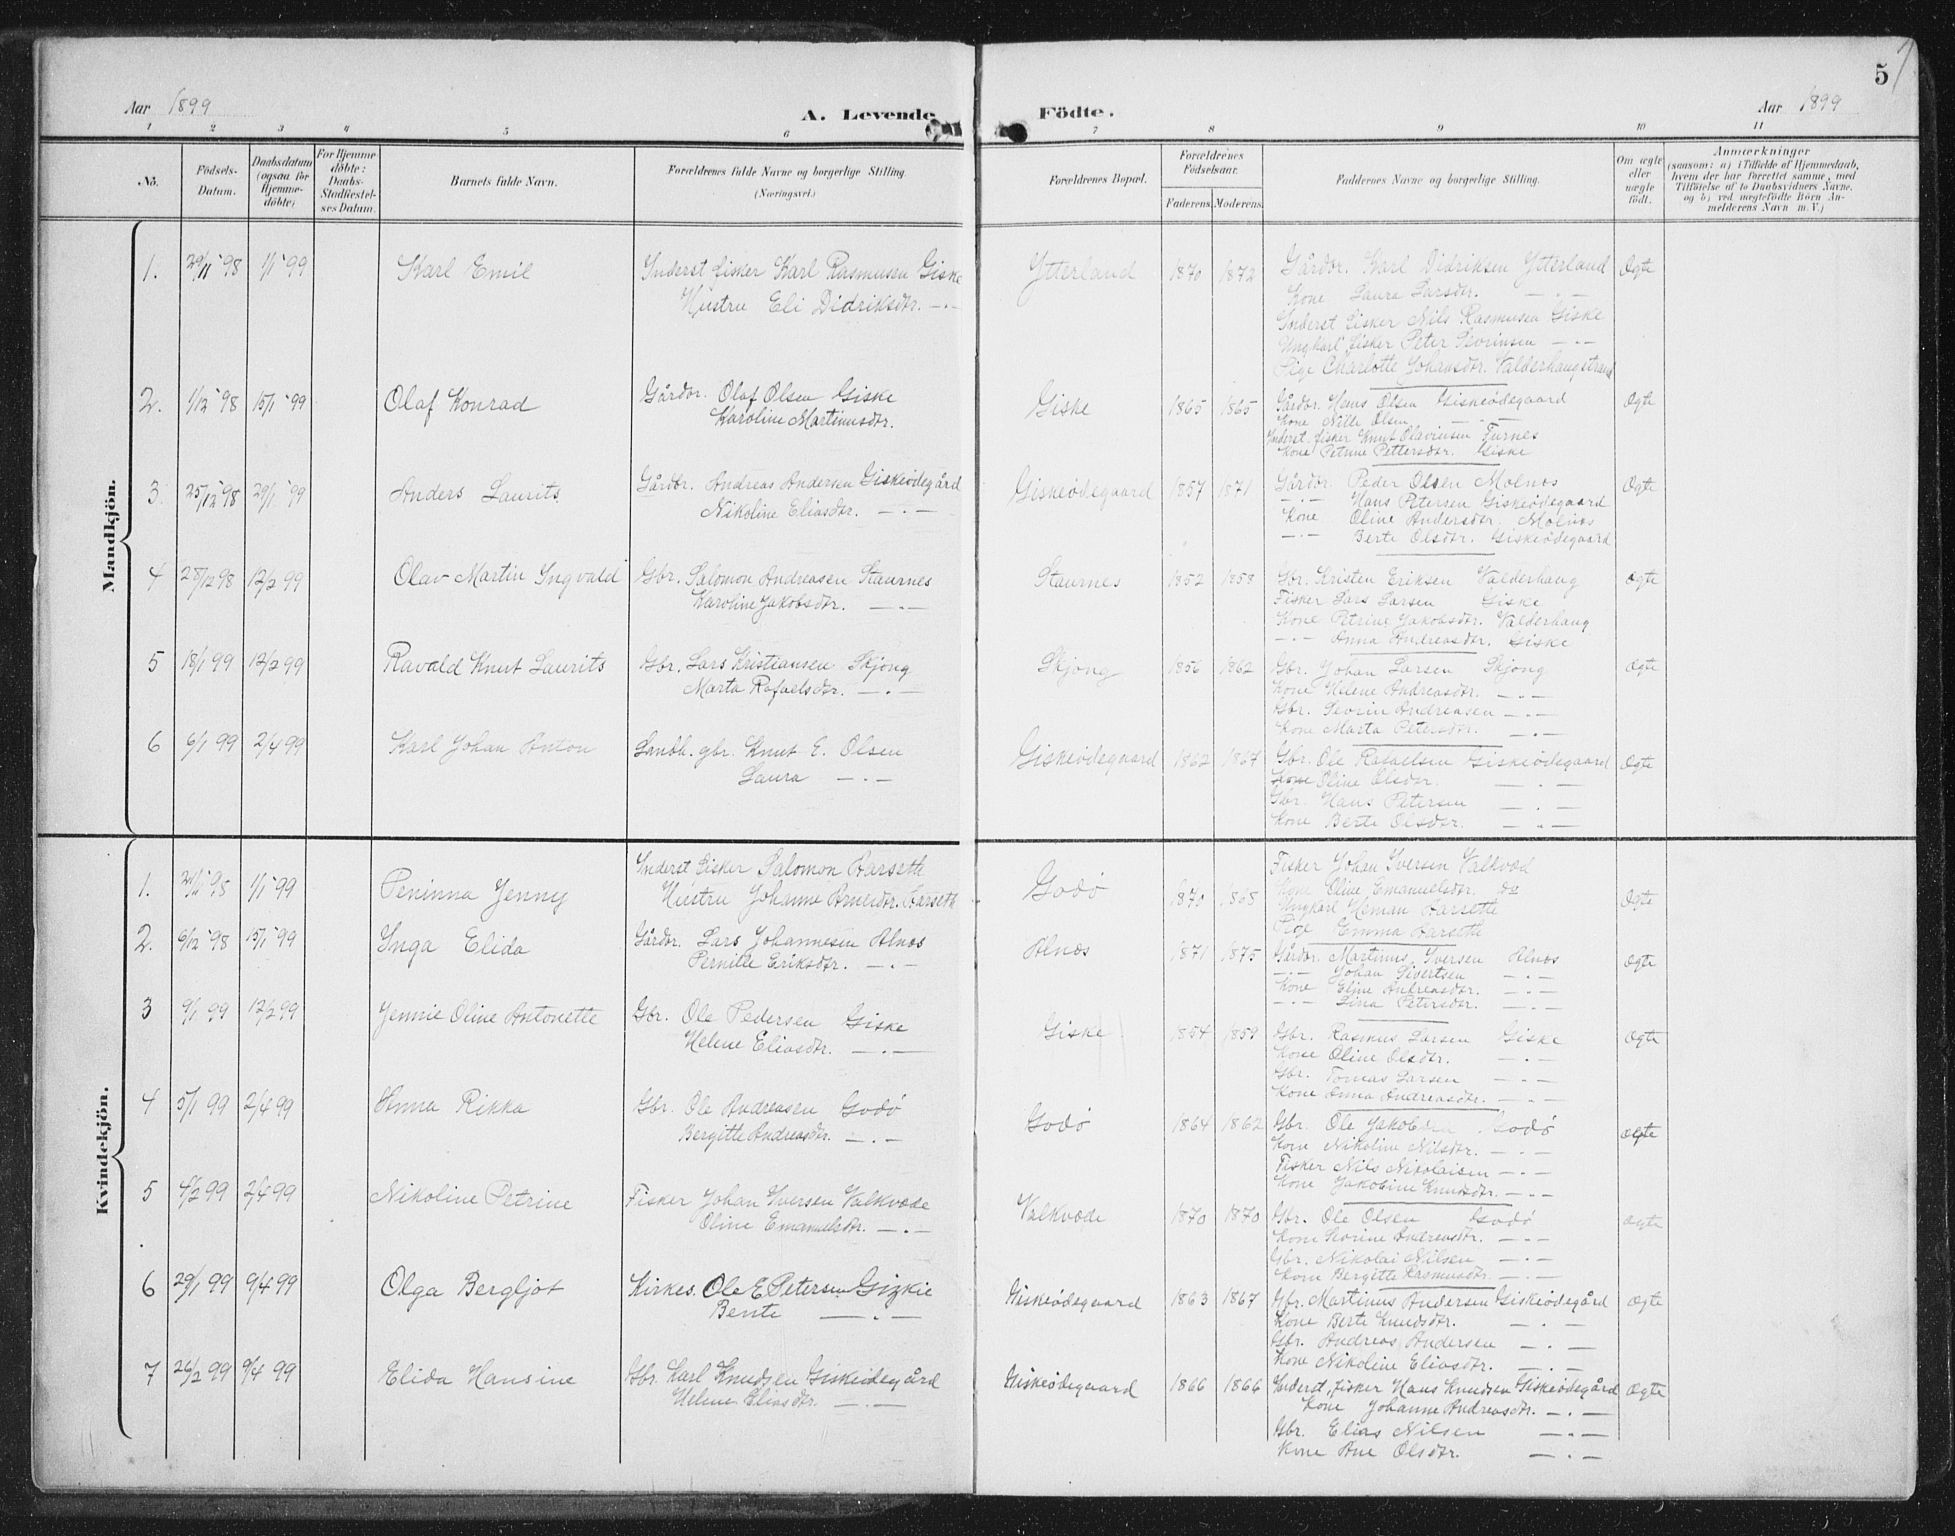 5
Aar 1899 A. Levende Födte. Aar 1899
1 2 3 4 5 6 7 8 9 10 11
No.
Födsels-Datum.
Daabsdatum (ogsaa for Hjemmedöbte)
For Hjemmedöbte: Daabs-Stadfæstelses Datum.
Barnets fulde Navn.
Forældrenes fulde Navne og borgerlige Stilling. (Næringsvei.)
Forældrenes Bopæl.
Forældrenes Födselsaar.
Faderens. Moderens.
Faddernes Navne og borgerlige Stilling.
Om ægte eller uægte födt.
Anmærkninger
(saasom: a) i Tilfælde af Hjemmedaab, hvem der har forrettet samme, med Tilföielse af to Daabsvidners Navne, og b) ved uægtefödte Börn Anmelderens Navn m. V.)
Mandkjön.
1. 29/11 98 1/1 99 Karl Emil Inderst fisker Karl Rasmusen Giske Ytterland 1870 1872 Gårdbr. Karl Didriksen Ytterland Ægte
Hustru Eli Didriksdtr. —"— Kone Laura Larsdtr. —"—
Inderst fisker Nils Rasmusen Giske
Ungkarl fisker Peter Sevrinsen —"—
Pige Charlotte Johansdtr. Valderhaugstrand
2. 1/12 98 15/1 99 Olaf Konrad Gårdbr. Olaf Olsen Giske Giske 1865 1865 Gårdbr. Hans Olsen Giskeödegaard Ægte
Karoline Martinusdtr. Kone Nille Olsen —"—
Inderst. fisker Knut Olavinsen Furnes
Kone Petrine Pettersdtr. Giske
3. 25/12 98 29/1 99 Anders Laurits Gårdbr. Andreas Andersen Giskeödegård Giskeödegaard 1857 1871 Gårdbr. Peder Olsen Molnes Ægte
Nikoline Eliasdtr. —"— —"— Hans Petersen Giskeödegaard
Kone Oline Andersdtr. Molnes
—"— Berte Olsdtr. Giskeödegaard
4 28/12 98 12/2 99 Olav Martin Ingvald Gbr. Salomon Andreasen Staurnes Staurnes 1852 1858 Gbr. Kristen Eriksen Valderhaug Ægte
Karoline Jakobsdtr. —"— Fisker Lars Larsen Giske
Kone Petrine Jakobsdtr. Valderhaug
—"— Anna Andreasdtr. Giske
5 18/1 99 12/2 99 Ravald Knut Laurits Gbr. Lars Kristiansen Skjong Skjong 1856 1862 Gbr. Johan Larsen Skjong Ægte
Marta Rafaelsdtr. —"— Kone Helene Andreasdtr. —"—
Gbr. Sevrin Andreasen —"—
Kone Marta Petersdtr. —"—
6 6/1 99 2/4 99 Karl Johan Anton Landh. gbr. Knut E. Olsen Giskeödegaard 1862 1867 Gbr. Ole Rafaelsen Giskeödegaard Ægte
Laura —"— Kone Oline Olsdtr. —"—
Gbr. Hans Petersen —"—
Kone Berte Olsdtr. —"—
Kvindekjön.
1. 98 1/1 99 Peninna Jenny Inderst fisker Salomon Aarseth Godö 1870 1868 Fisker Johan Iversen Valkvæd Ægte
Hustru Johanne Arnesdtr. Aarseth Kone Oline Emanuelsdtr. do
Ungkarl Heman Aarsette
Pige Emma Aarsette
2. 6/12 98 15/1 99 Inga Elida Gårdbr. Lars Johannesen Alnæs Alnæs 1871 1875 Gårdbr. Martinus Iversen Alnæs Ægte
Pernille Eriksdtr. —"— —"— Johan Sivertsen —"—
Kone Eline Andreasdtr. —"—
—"— Lina Petersdtr. —"—
3 9/1 99 12/2 99 Jennie Oline Antonette Gbr. Ole Pedersen Giske Giske 1854 1859 Gbr. Rasmus Larsen Giske Ægte
Helene Eliasdtr. —"— Kone Oline Olsdtr. —"—
Gbr. Tomas Larsen —"—
Kone Anna Andreasdtr. —"—
4 5/1 99 2/4 99 Anna Rikka Gbr. Ole Andreasen Godö Godö 1864 1862 Gbr. Ole Jakobsen Godö Ægte
Bergitte Andreasdtr. —"— Kone Nikoline Nilsdtr. —"—
Fisker Nils Nikolaisen —"—
Kone Jakobine Knudsdtr. —"—
5 4/2 99 2/4 99 Nikoline Petrine Fisker Johan Iversen Valkvæde Valkvæde 1870 1870 Gbr. Ole Olsen Godö Ægte
Oline Emanuelsdtr. —"— Kone Sevrine Andreasdtr. —"—
Gbr. Nikolai Nilsen —"—
Kone Bergitte Rasmusdtr. —"—
6 29/1 99 9/4 99 Olga Bergljot Kirkes. Ole E Petersen Gizkie Giskeödegaard 1863 1867 Gbr. Martinus Andersen Giskeödegård Ægte
Bente —"— Kone Berte Knudsdtr. —"—
Gbr. Andreas Andersen —"—
Kone Nikoline Eliasdtr. —"—
7 26/2 99 9/4 99 Elida Hansine Gbr. Karl Knudsen Giskeödegård Giskeödegaard 1866 1866 Inderst, fisker Hans Knudsen Giskeödegård Ægte
Helene Eliasdtr. —"— Kone Johanne Andreasdtr. —"—
Gbr. Elias Nilsen —"—
Kone Ane Olsdtr. —"—